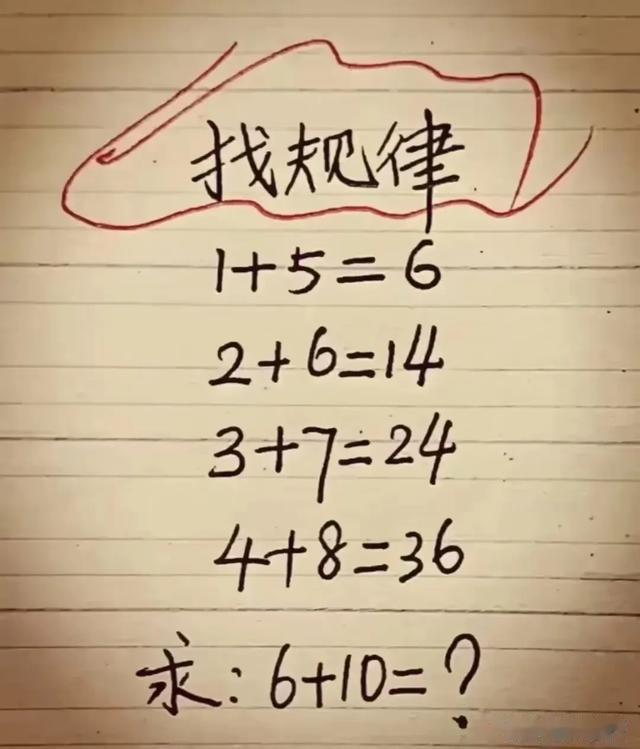 找规律
1+5=6
2+6=14
3+7=24
4+8=36
求:6+10=?